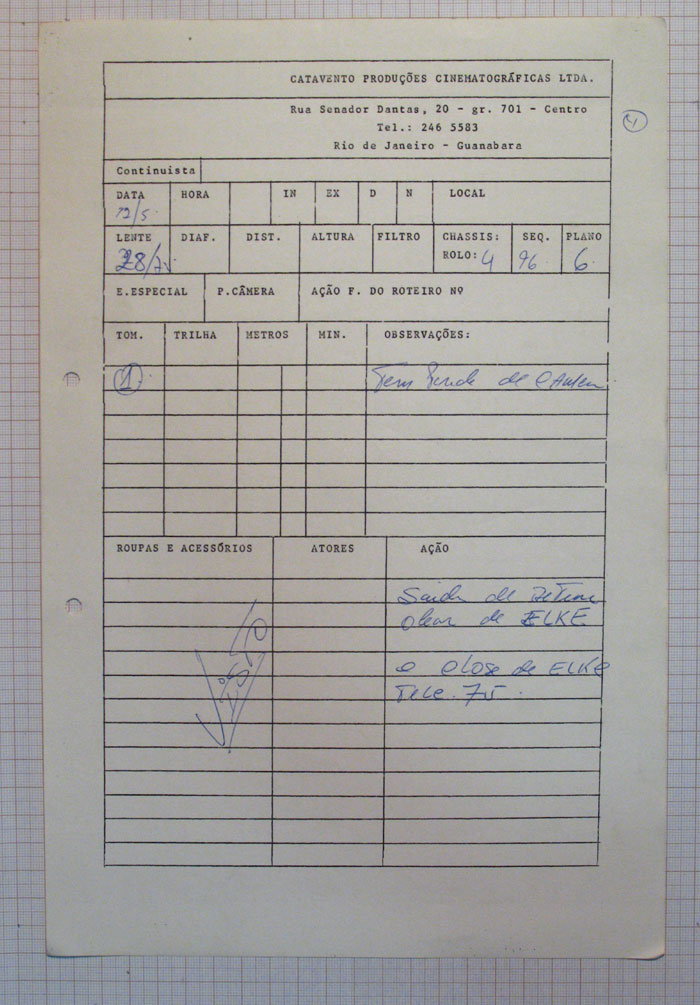 CATAVENTO PRODUÇÕES CINEMATOGRÁFICAS LTDA.
Rua Senador Dantas, 20 - gr. 701 - Centro
Tel.: 246 5583
Rio de Janeiro - Guanabara
Continuista
DATA HORA IN EX D N LOCAL
12/5
LENTE DIAF. DIST. ALTURA FILTRO CHASSIS: SEQ. PLANO
28/75 ROLO: 4 96 6
E.ESPECIAL P.CÂMERA AÇÃO F. DO ROTEIRO Nº
TOM. TRILHA METROS MIN. OBSERVAÇÕES:
1 Tem de
ROUPAS E ACESSÓRIOS ATORES AÇÃO
Saida de
de ELKE
e close de ELKE
Tele. 75.